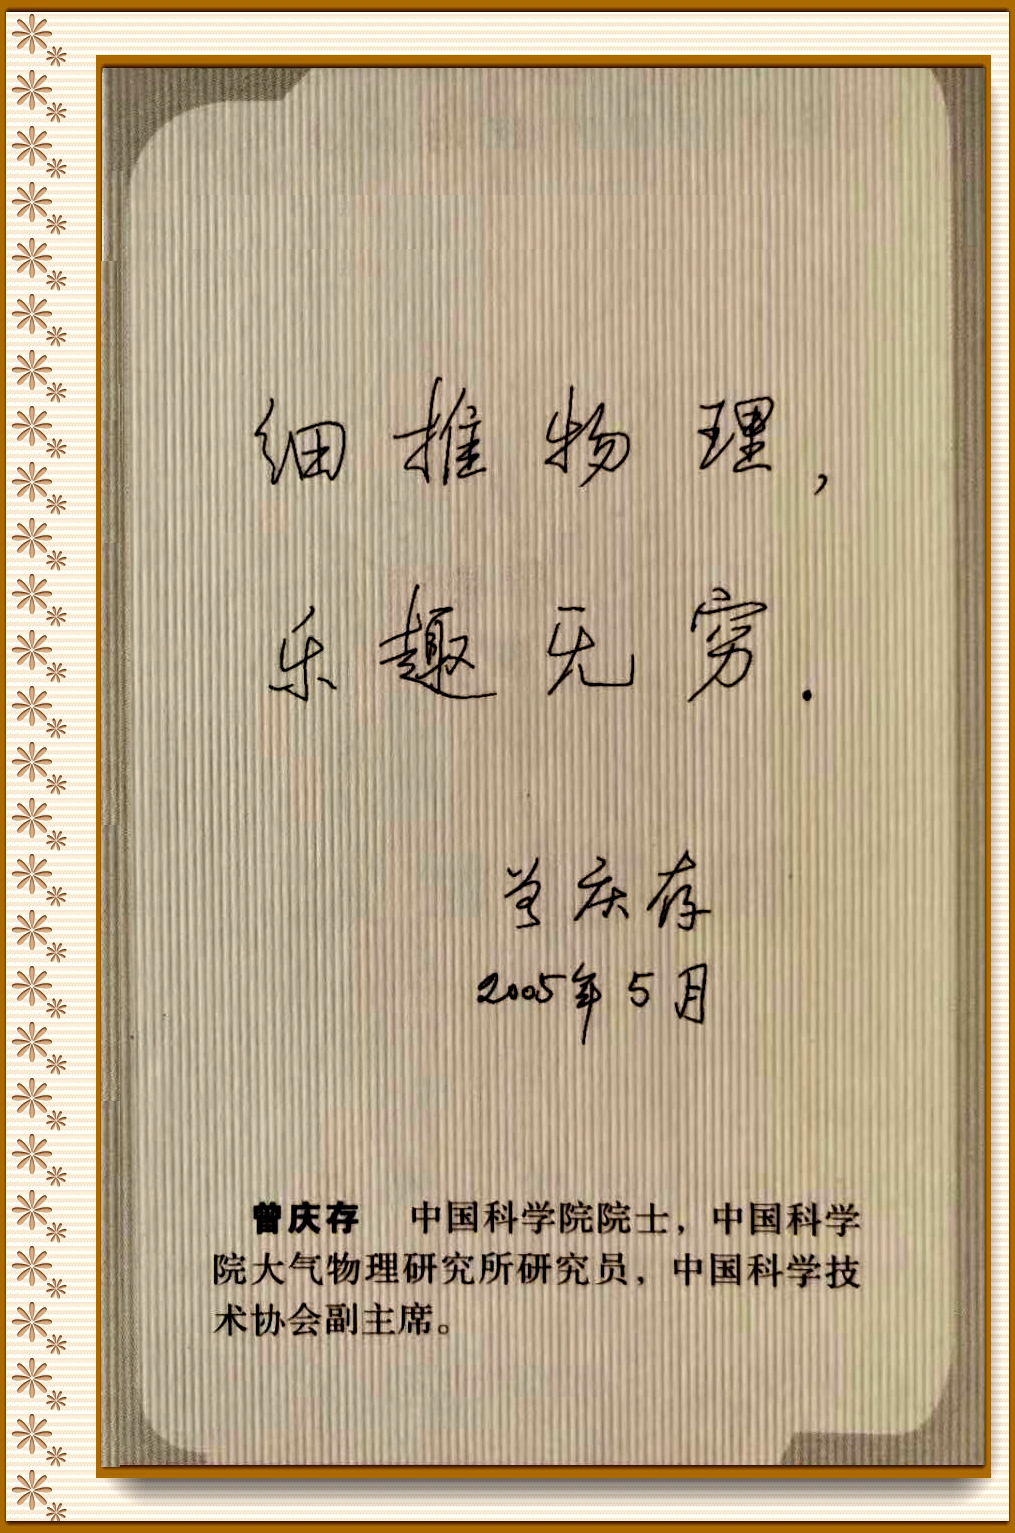 细推物理，
乐趣无穷.
曾庆存
2005年5月
曾庆存 中国科学院院士，中国科学
院大气物理研究所研究员，中国科学技
术协会副主席。